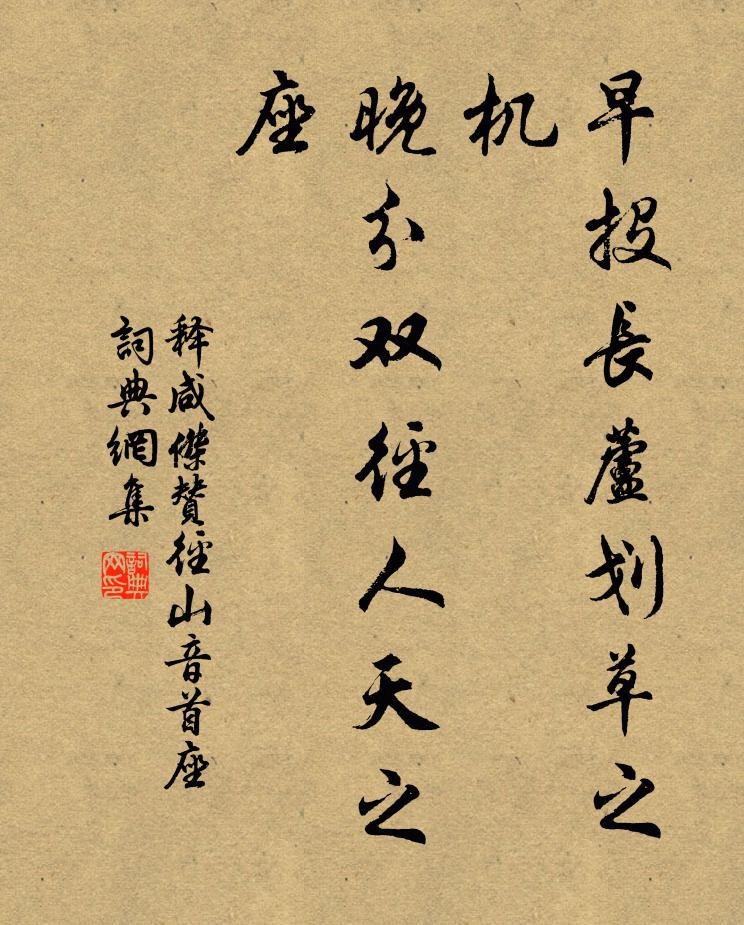 早投長蘆划草之
机
晚分双徑人天之
座
释咸傑賛徑山音首座
詞典網集
詞典網印